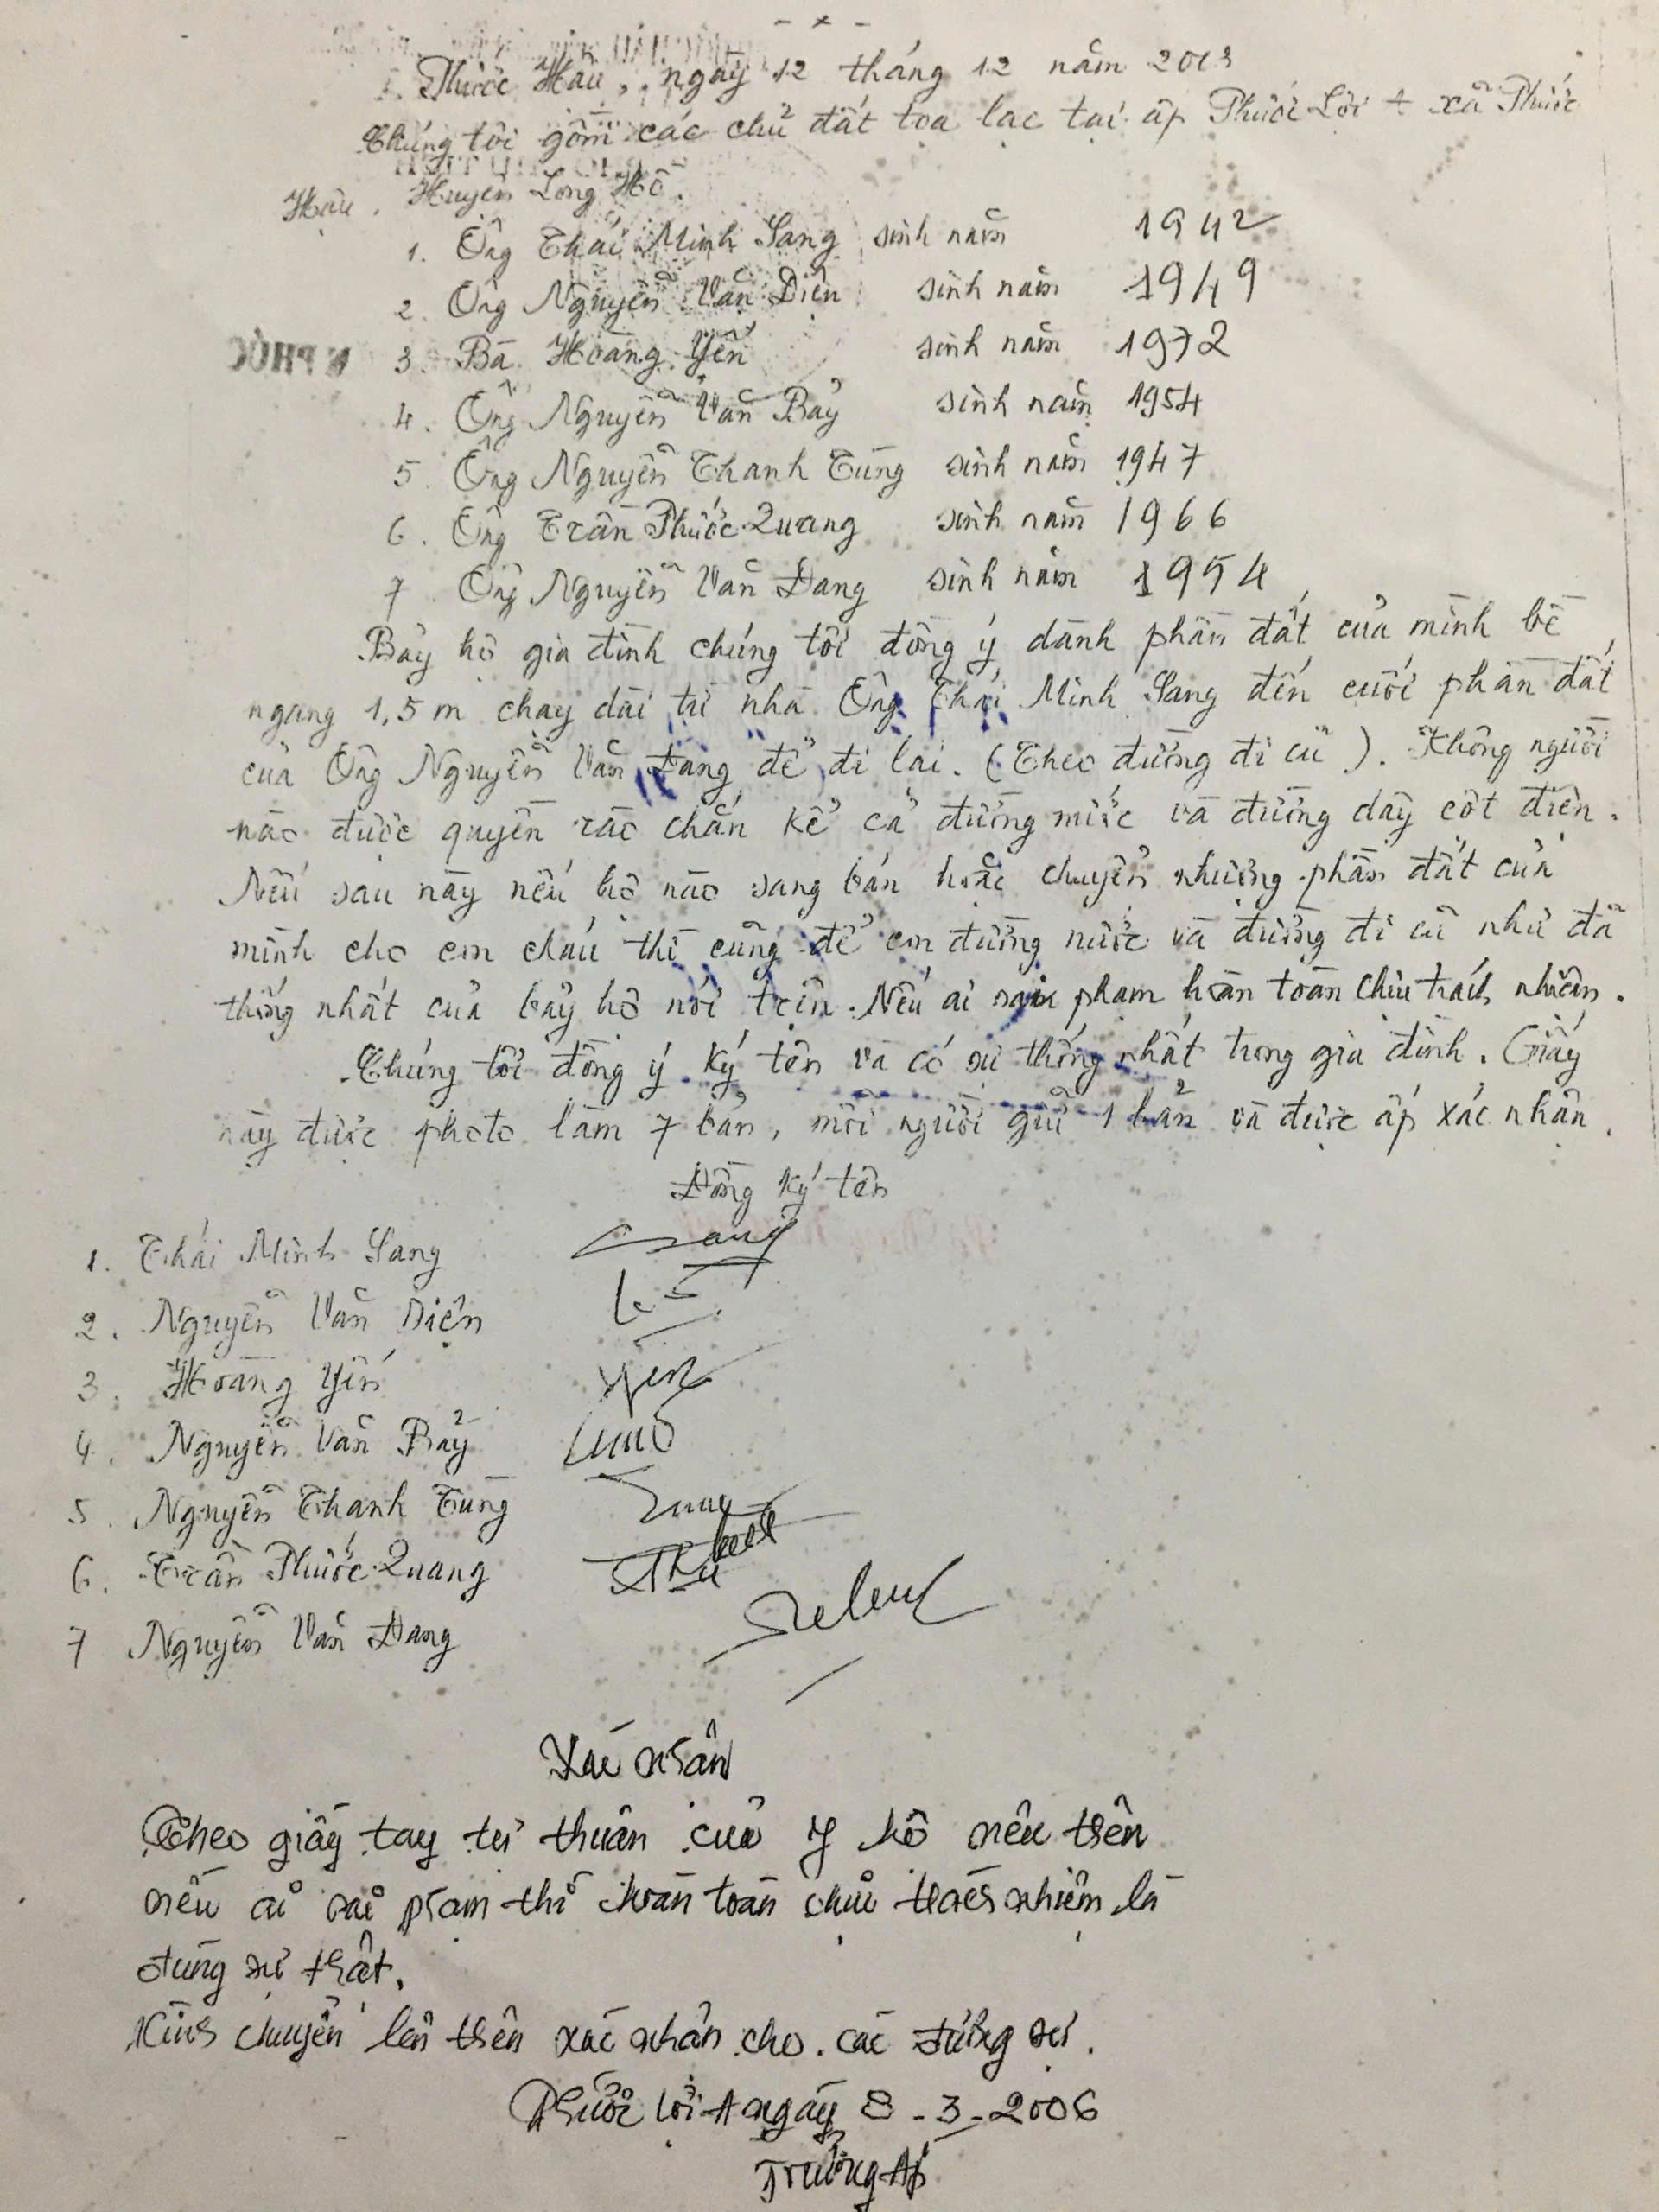 - * -
Phước Hậu, ngày 12 tháng 12 năm 2003
Chúng tôi gồm các chủ đất tọa lạc tại ấp Phước Lợi A xã Phước
Hậu, Huyện Long Hồ.
1. Ông Thái Minh Sang sinh năm 1942
2. Ông Nguyễn Văn Diện sinh năm 1949
3. Bà Hoàng Yến sinh năm 1972
4. Ông Nguyễn Văn Bảy sinh năm 1954
5. Ông Nguyễn Thanh Tùng sinh năm 1947
6. Ông Trần Phước Quang sinh năm 1966
7. Ông Nguyễn Văn Đang sinh năm 1954
Bảy hộ gia đình chúng tôi đồng ý dành phần đất của mình bề
ngang 1,5 m chạy dài từ nhà Ông Thái Minh Sang đến cuối phần đất
của Ông Nguyễn Văn Đang để đi lại. (Theo đường đi cũ). Không người
nào được quyền rào chắn kể cả đường nước và đường dây cột điện.
Nếu sau này nếu hộ nào sang bán hoặc chuyển nhượng phần đất của
mình cho con cháu thì cũng để con đường nước và đường đi cũ như đã
thống nhất của bảy hộ nói trên. Nếu ai sai phạm hoàn toàn chịu trách nhiệm.
Chúng tôi đồng ý ký tên và có sự thống nhất trong gia đình. Giấy
này được photo làm 7 bản, mỗi người giữ 1 bản và được ấp xác nhận.
Đồng ký tên
1. Thái Minh Sang
2. Nguyễn Văn Diện
3. Hoàng Yến
4. Nguyễn Văn Bảy
5. Nguyễn Thanh Tùng
6. Trần Phước Quang
7 Nguyễn Văn Đang
Xác nhận
Theo giấy tay tự thuận của 7 hộ nêu trên
nếu ai sai phạm thì hoàn toàn chịu trách nhiệm là
đúng sự thật.
Kính chuyển lên trên xác nhận cho các đương sự.
Phước Lợi A ngày 8-3-2006
Trưởng Ấp